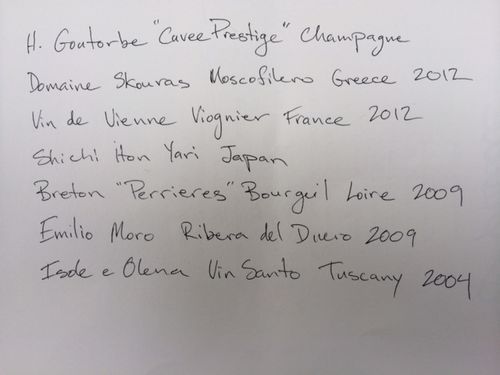 H. Goutorbe "Cavee Prestige" Champagne
Domaine Skouras Moscofilero Greece 2012
Vin de Vienne Viognier France 2012
Shichi Hon Yari Japan
Breton "Perrieres" Bourguil Loire 2009
Emilio Moro Ribera del Duero 2009
Isde e Olena Vin Santo Tuscany 2004